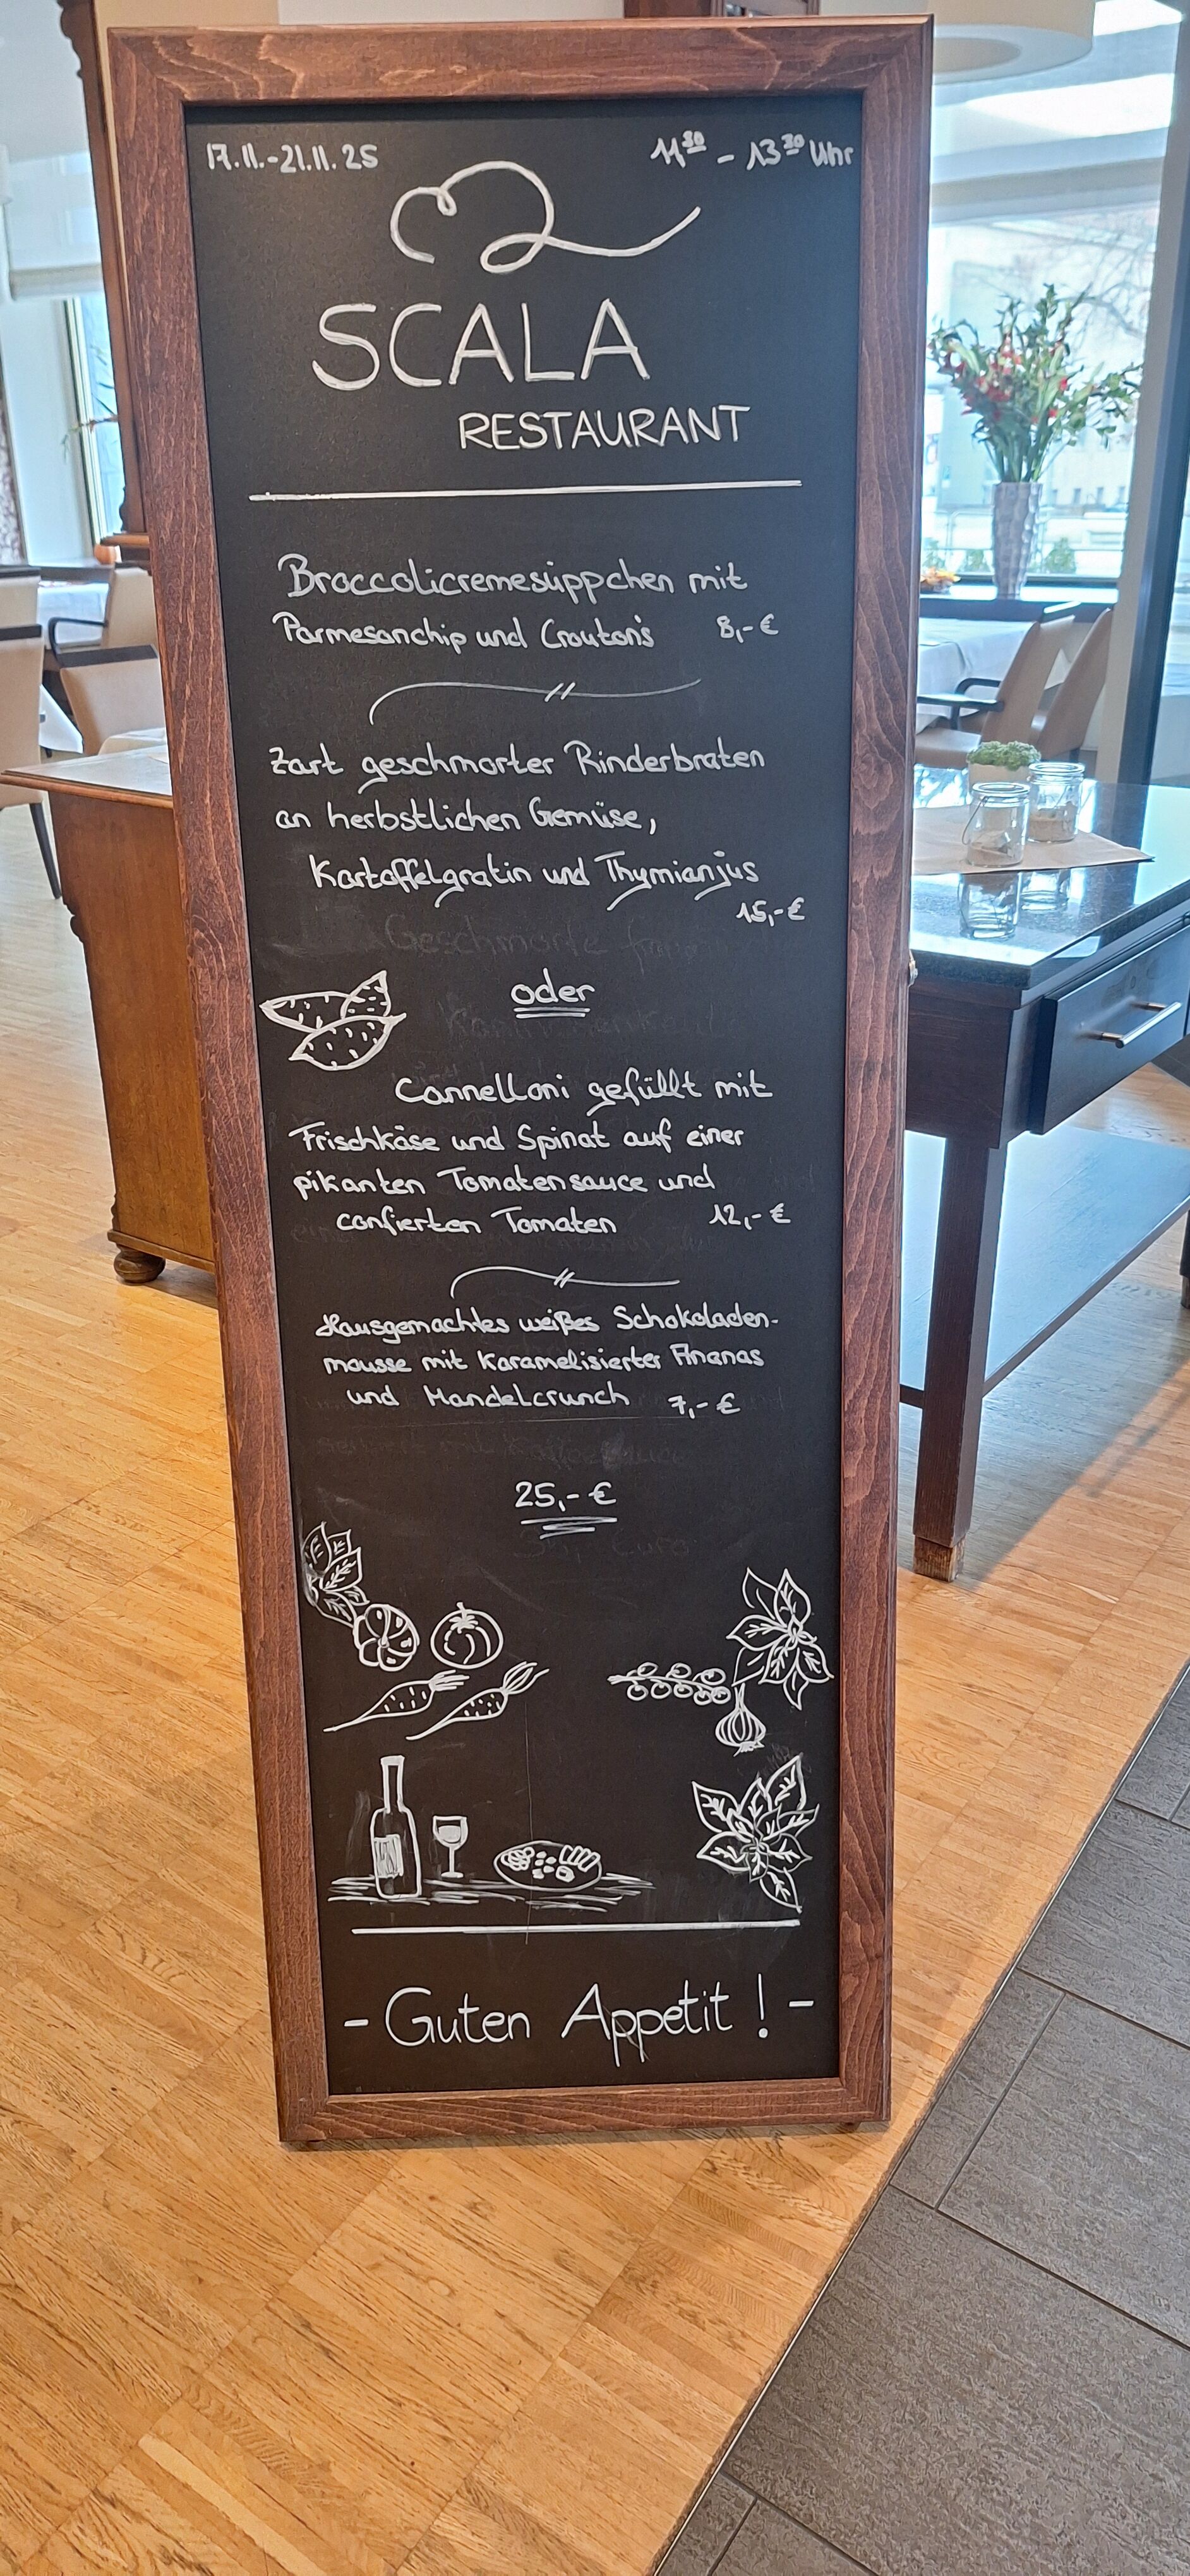 17.11.-21.11.25
11³⁰ - 13³⁰ Uhr
SCALA
RESTAURANT
Broccolicremesüppchen mit
Parmesanchip und Crouton's 8,-€
Zart geschmorter Rinderbraten
an herbstlichen Gemüse,
Kartoffelgratin und Thymianjus
15,-€
oder
Cannelloni gefüllt mit
Frischkäse und Spinat auf einer
pikanten Tomatensauce und
confierten Tomaten 12,-€
Hausgemachtes weißes Schokoladen-
mousse mit Karamelisierter Ananas
und Mandelcrunch 7,-€
25,-€
- Guten Appetit! -